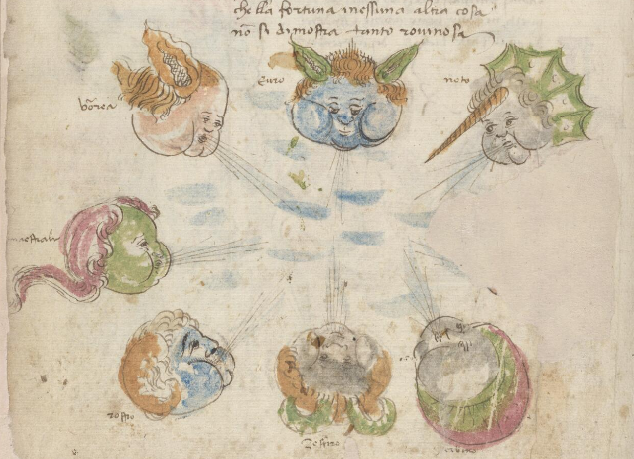 che lla fortuna inessuna altra cosa
nō si dimostra tanto rovinosa
bōrea
Euro
noto
rostro
Zefiro